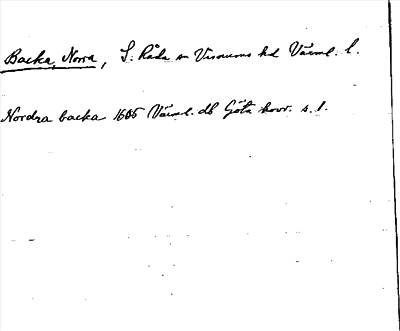 Backa, Norra, S. Råda sn Visnums hd Värml. l.
Nordra backa 1685 Värml. db Göta hovr. s. 1.